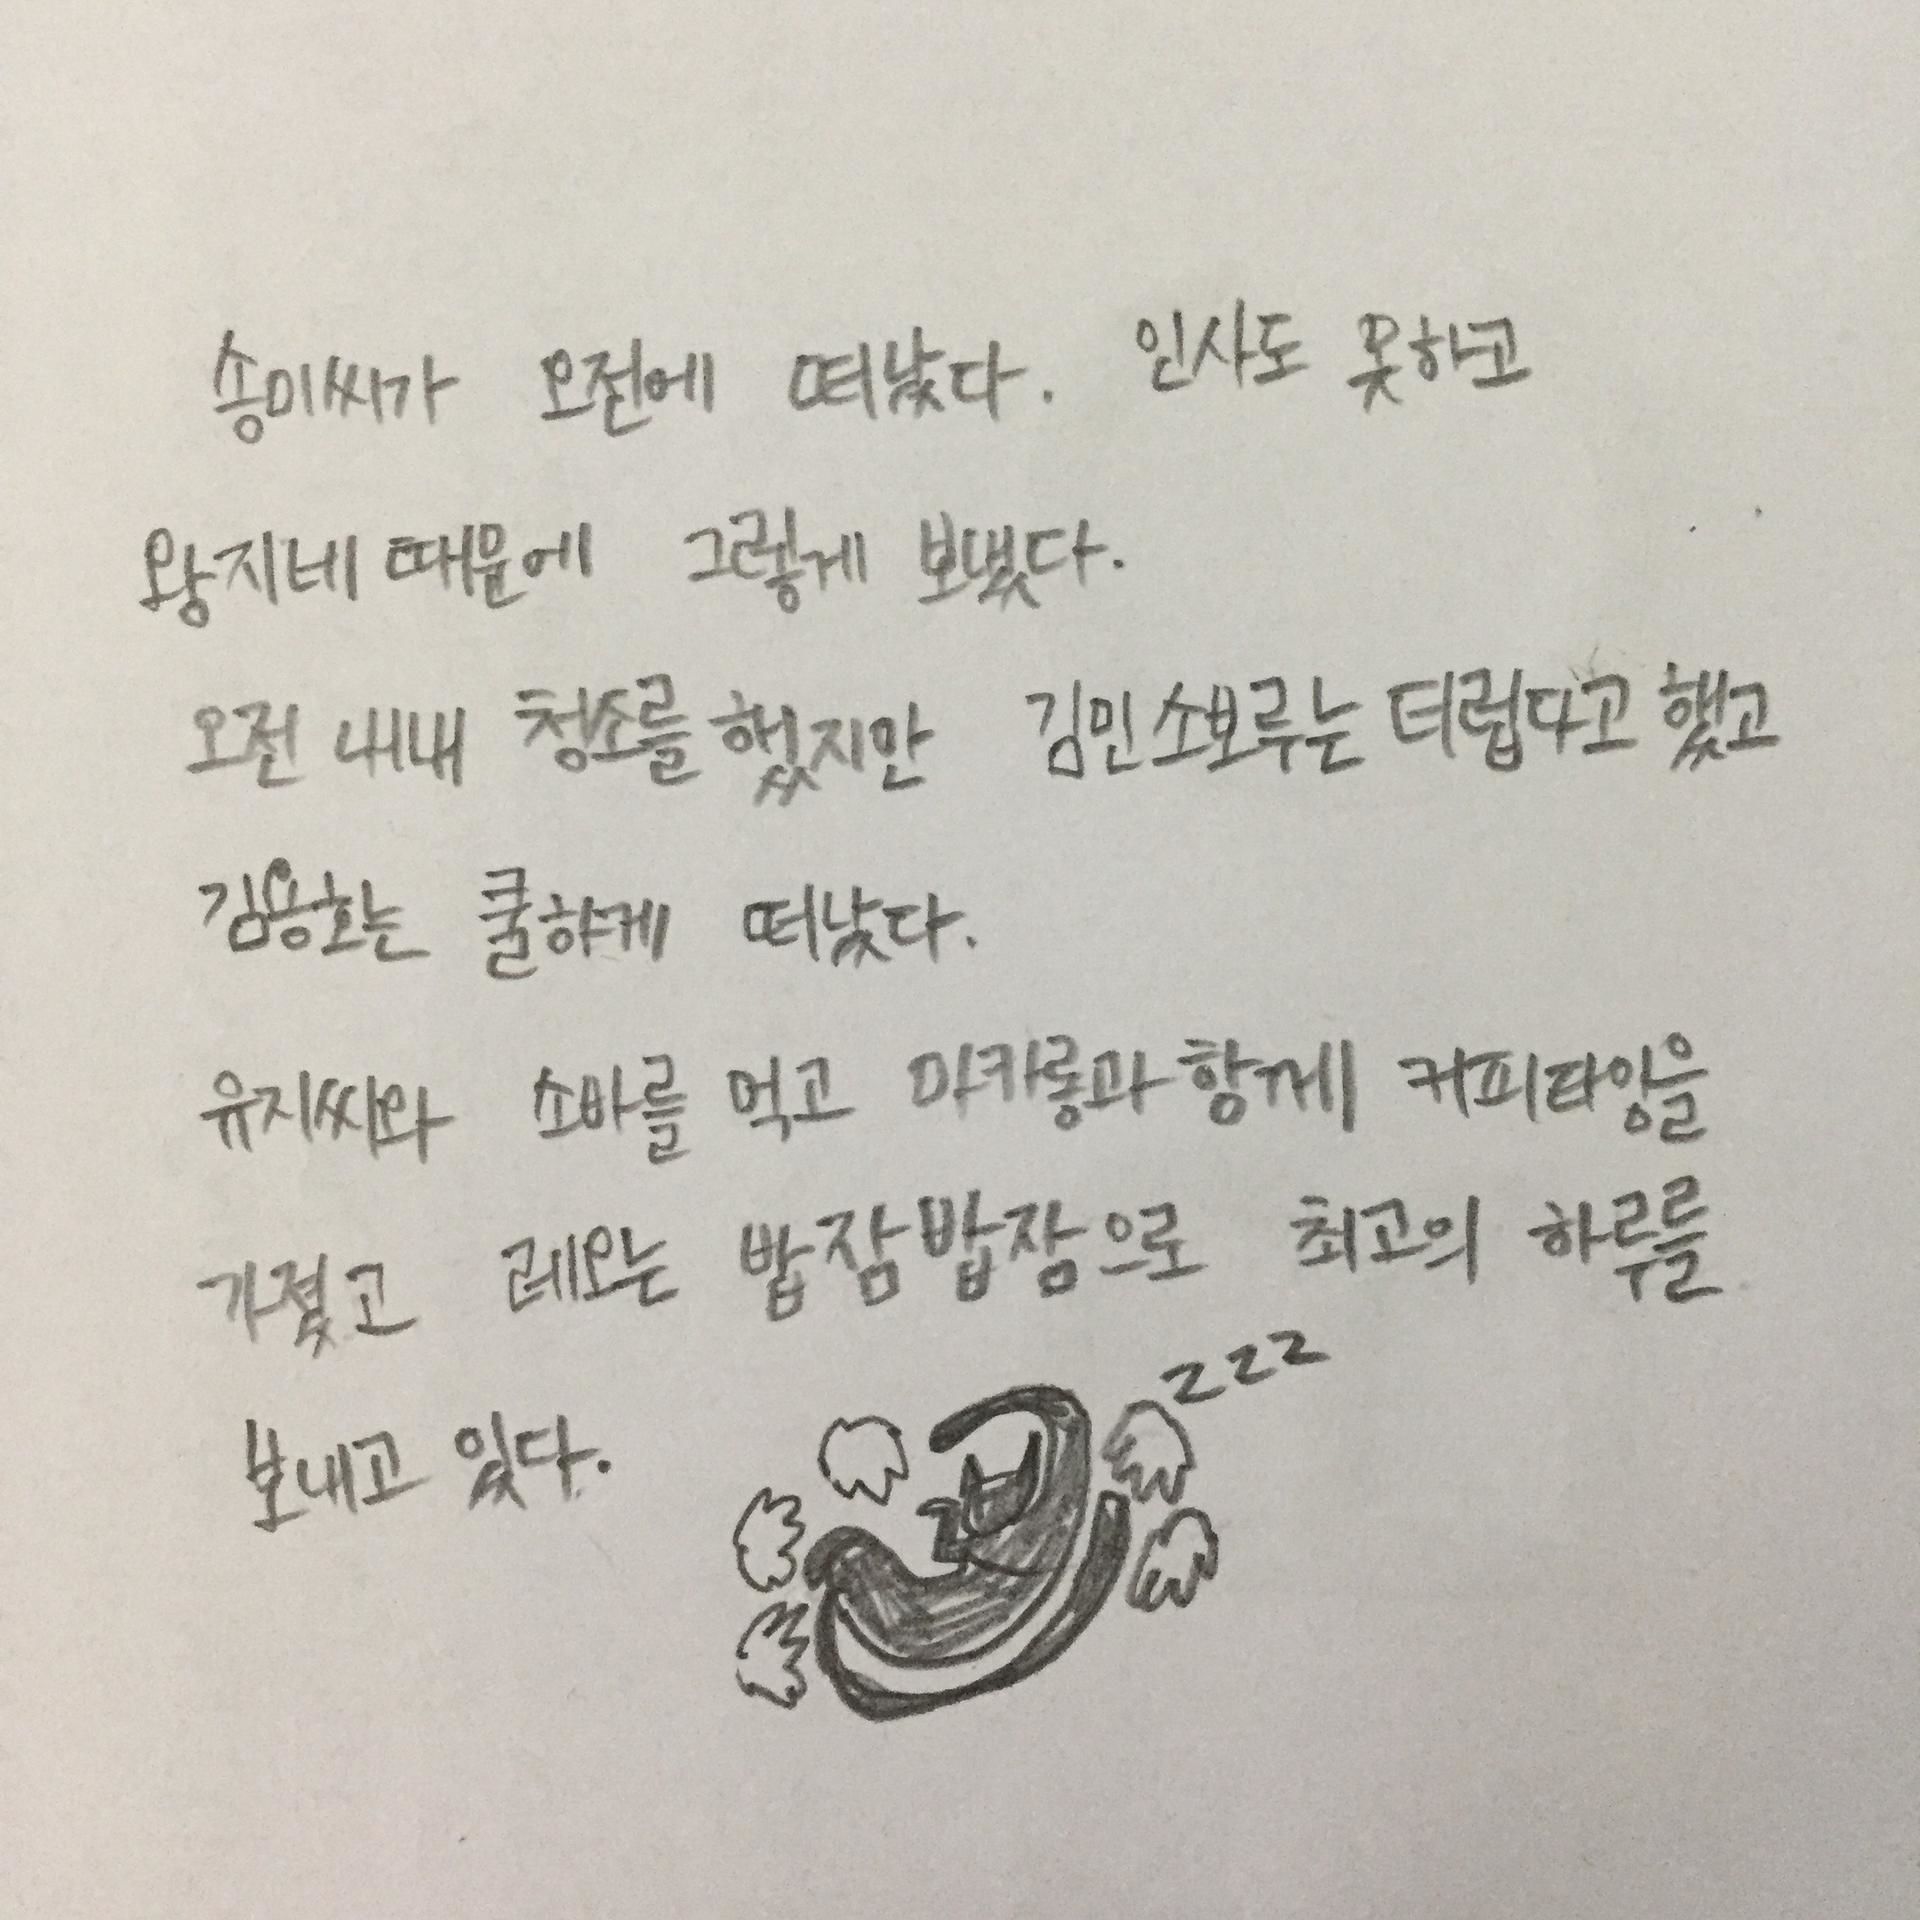 송미씨가 오전에 떠났다. 인사도 못하고
왕지네 때문에 그렇게 보냈다.
오전 내내 청소를 했지만 김민소보루는 더럽다고 했고
김용호는 쿨하게 떠났다.
유지씨와 소바를 먹고 마카롱과 함께 커피타임을
가졌고 레오는 밥잠밥잠으로 최고의 하루를
보내고 있다.
zzz